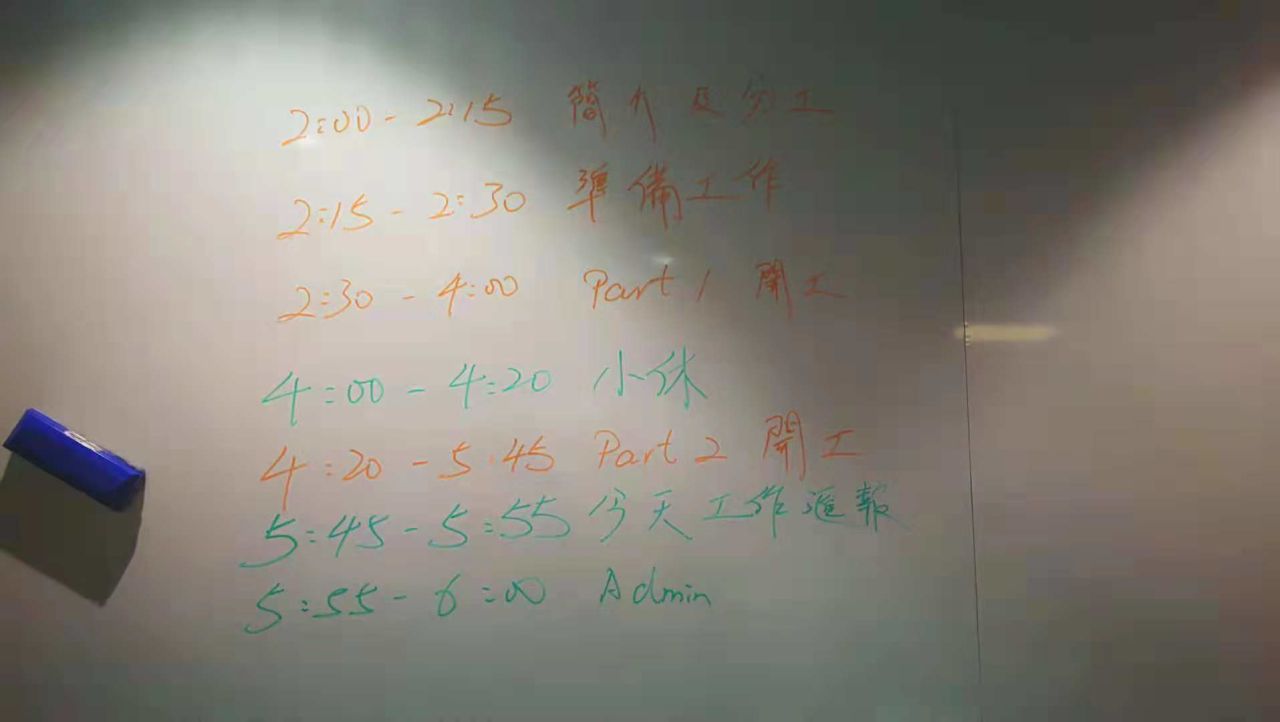 2:00 - 2:15 簡介及分工
2:15 - 2:30 準備工作
2:30 - 4:00 Part 1 開工
4:00 - 4:20 小休
4:20 - 5:45 Part 2 開工
5:45 - 5:55 今天工作滙報
5:55 - 6:00 Admin